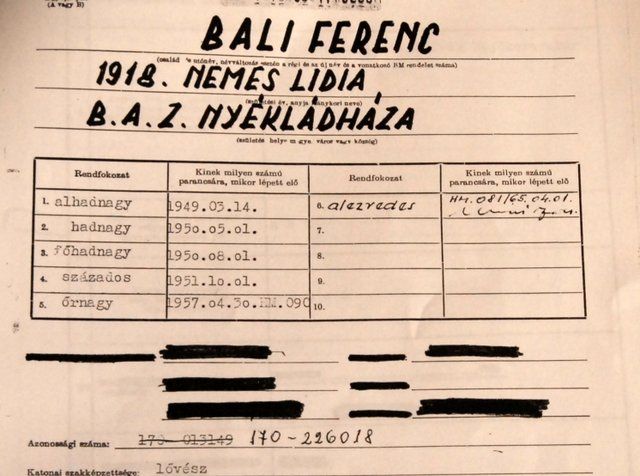 (A vagy B)
BALI FERENC
(család és utónév, névváltozás esetén a régi és az új név és a vonatkozó BM rendelet száma)
1918. NEMES LIDIA,
(születési év, anyja leánykori neve)
B.A.Z. NYÉKLÁDHÁZA
(születés helye megye, város vagy község)
Rendfokozat Kinek milyen számú parancsára, mikor lépett elő Rendfokozat Kinek milyen számú parancsára, mikor lépett elő
1. alhadnagy 1949.03.14. 6. alezredes HM. 081/65.04.01.
2. hadnagy 1950.05.01. 7.
3. főhadnagy 1950.08.01. 8.
4. százados 1951.10.01. 9.
5. őrnagy 1957.04.30.HM.090 10.
Azonosági száma: 170-013149 170-226018
Katonai szakképzettsége: lövész